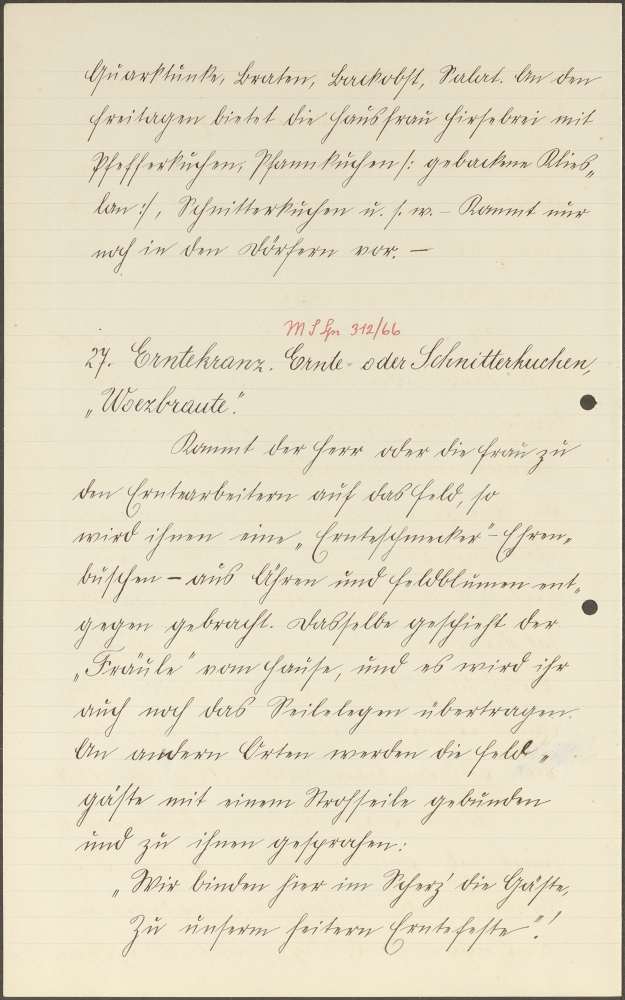 Quarktunke, Braten, Backobst, Salat. An den
Freitagen bietet die Hausfrau Hirsebrei mit
Pfefferkuchen, Pfannkuchen /: gebackene Klies„
lan :/, Schnitterkuchen u. s. w. – Kommt nur
noch in den Dörfern vor. —
MS Spr 312/66
27. Erntekranz. Ernte- oder Schnitterkuchen,
„Woezbraute“.
Kommt der Herr oder die Frau zu
den Erntearbeitern auf das Feld, so
wird ihnen eine „Ernteschmecker“ – Ehren„
buschen – aus Ähren und Feldblumen ent„
gegen gebracht. Dasselbe geschieht der
„Fräule“ vom Hause, und es wird ihr
auch noch das Seilelegen übertragen.
An andern Orten werden die Feld„
gäste mit einem Strohseile gebunden
und zu ihnen gesprochen:
„Wir binden hier im Scherz' die Gäste,
Zu unserm heitern Erntefeste“!